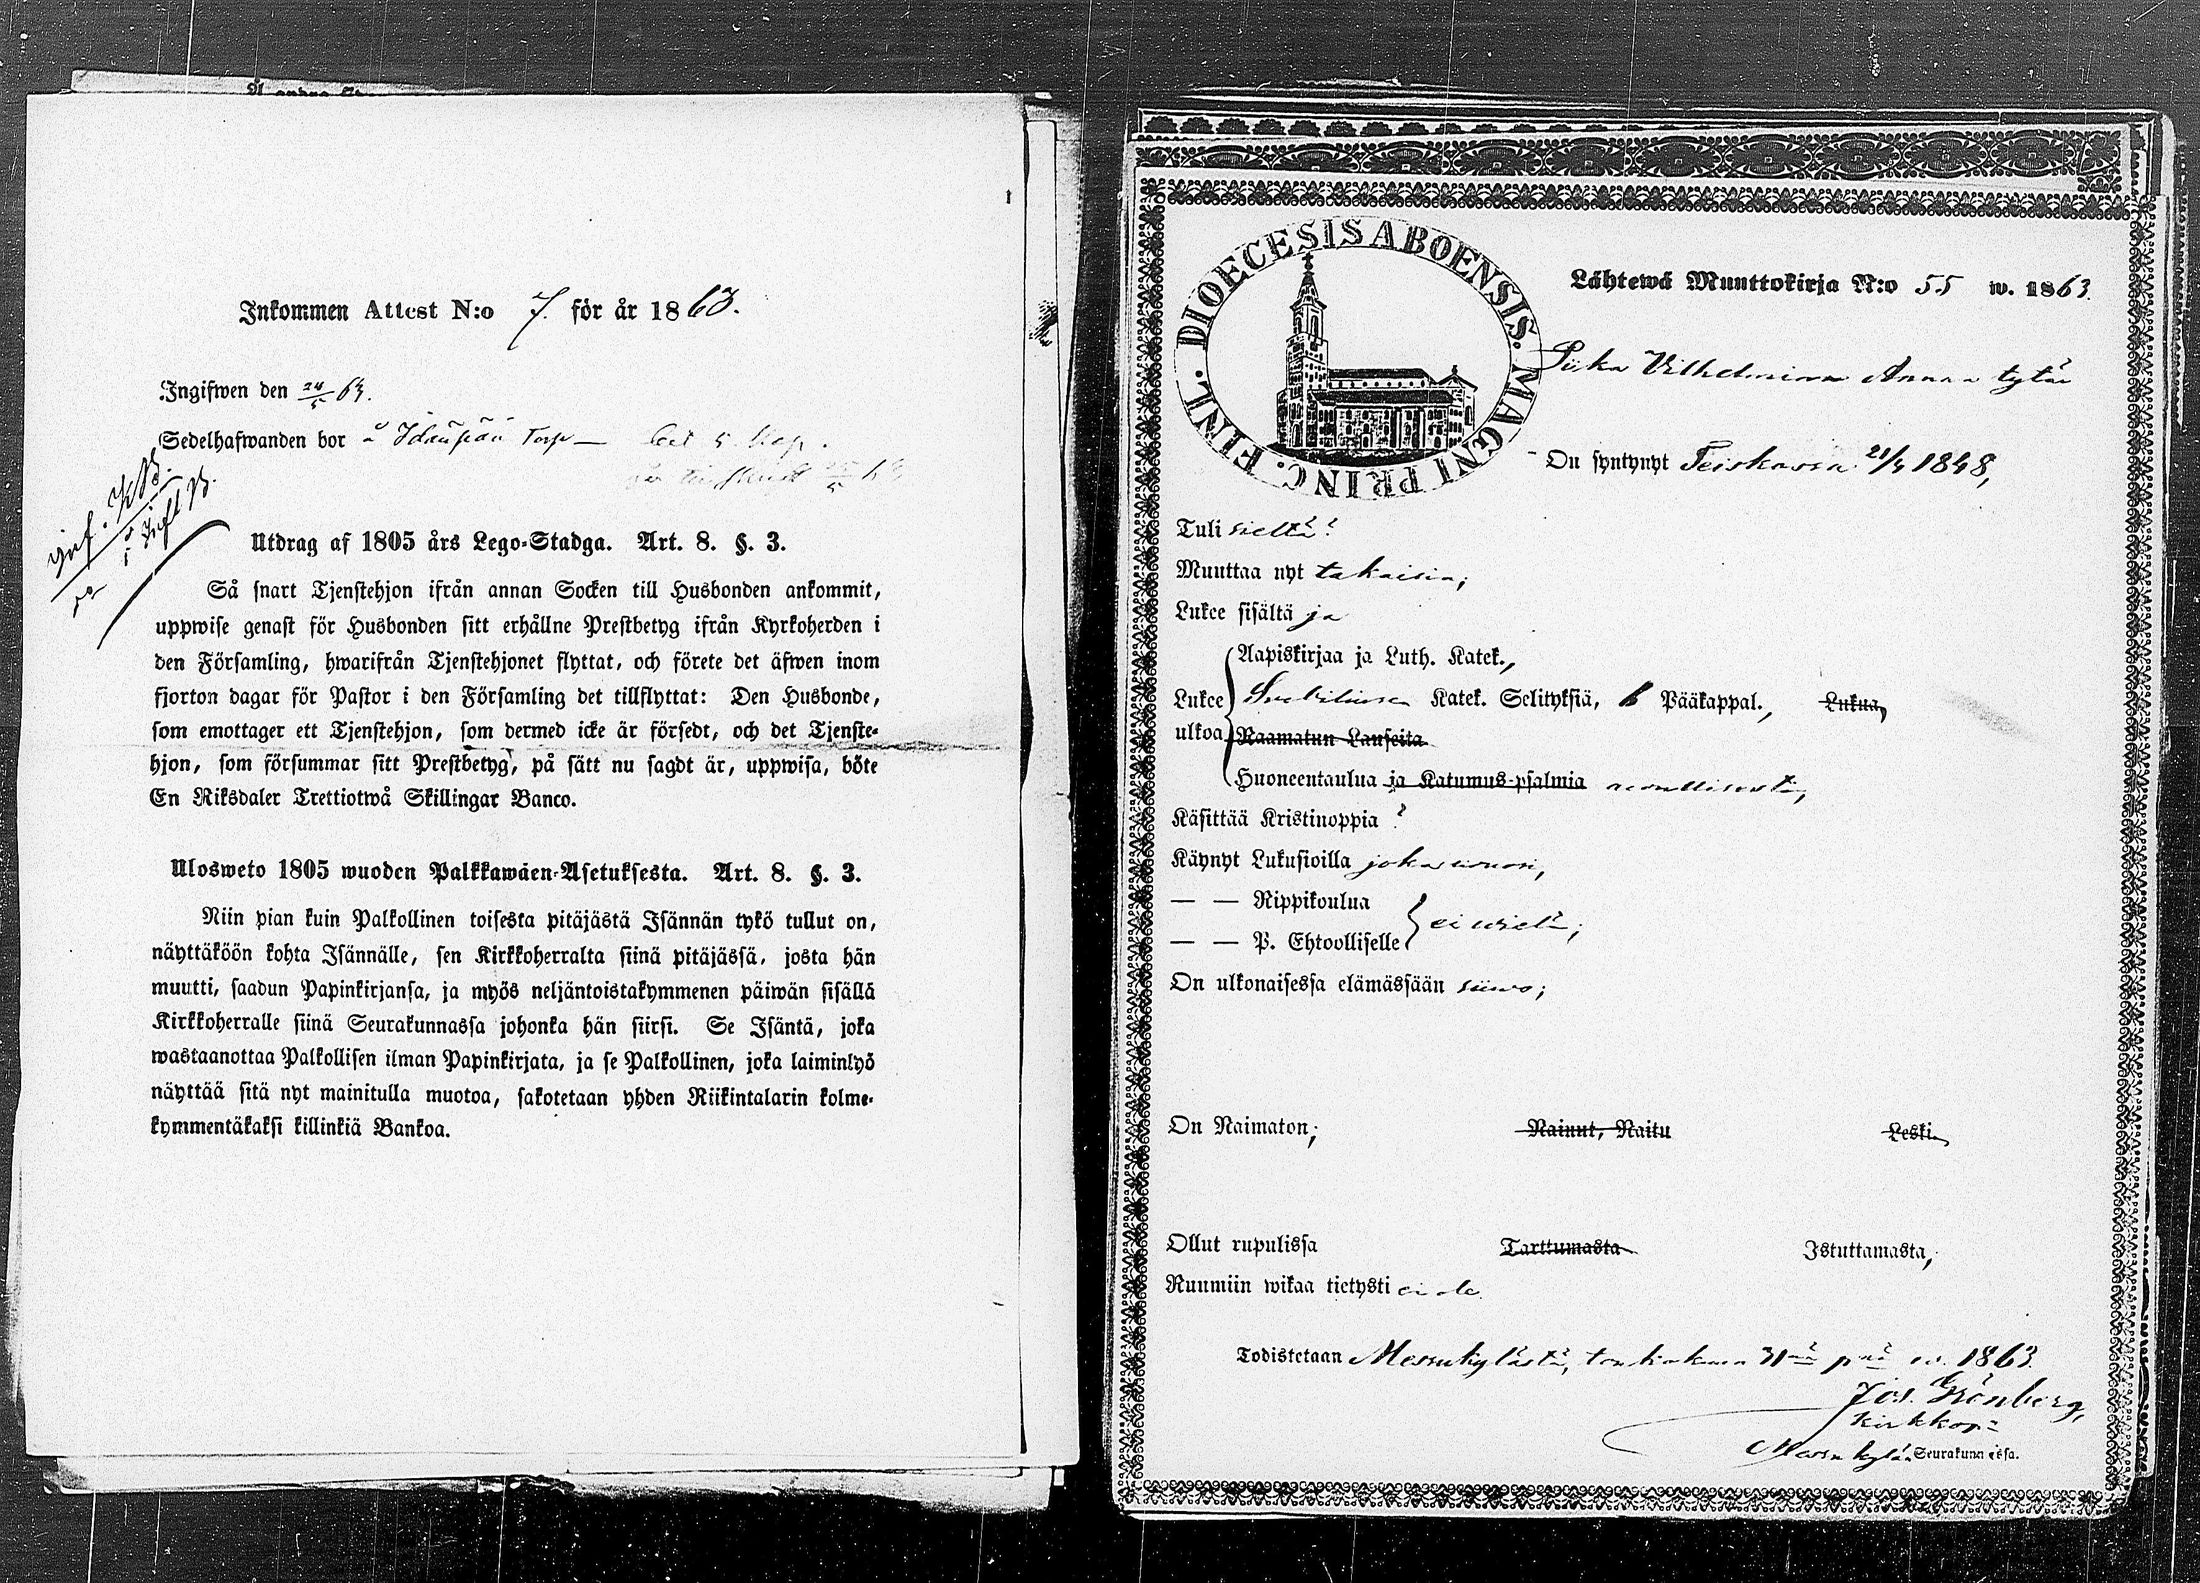 Inkommen Attest N:o 7. för år 1863.
Ingifwen den 24/5 63.
Sedelhafwanden bor å Torp — 5 Kap.
inf. KB.
Utdrag af 1805 års Lego-Stadga. Art. 8. §. 3.
Så snart Tjenstehjon ifrån annan Socken till Husbonden ankommit,
uppwise genast för Husbonden sitt erhållne Prestbetyg ifrån Kyrkoherden i
den Församling, hwarifrån Tjenstehjonet flyttat, och förete det äfwen inom
fjorton dagar för Pastor i den Församling det tillflyttat: Den Husbonde,
som emottager ett Tjenstehjon, som dermed icke är försedt, och det Tjenste-
hjon, som försummar sitt Prestbetyg, på sätt nu sagdt är, uppwisa, böte
En Riksdaler Trettiotwå Skillingar Banco.
Ulosweto 1805 wuoden Palkkawäen-Asetuksesta. Art. 8. §. 3.
Niin pian kuin Palkollinen toisesta pitäjästä Isännän tykö tullut on,
näyttäköön kohta Isännälle, sen Kirkkoherralta siinä pitäjässä, josta hän
muutti, saadun Papinkirjansa, ja myös neljäntoistakymmenen päiwän sisällä
Kirkkoherralle siinä Seurakunnassa johonka hän siirsi. Se Isäntä, joka
wastaanottaa Palkollisen ilman Papinkirjata, ja se Palkollinen, joka laiminlyö
näyttää sitä nyt mainitulla muotoa, sakotetaan yhden Riikintalarin kolme-
kymmentäkaksi killinkiä Bankoa.
DIOECESIS ABOENSIS. MAGNI PRINC. FINL.
Lähtewä Muuttokirja N:o 55 w. 1863.
Siika Vilhelmiina Annan tytär
On syntynyt Teiskossa 21/4 1848,
Tuli sieltä?
Muuttaa nyt takaisin;
Lukee sisältä ja
Aapiskirjaa ja Luth. Katek.,
Lukee Svebiliusen Katek. Selityksiä, 6 Pääkappal., Lukua,
ulkoa Raamatun Lauseita
Huoneentaulua ja Katumus-psalmia
Käsittää Kristinoppia ?
Käynyt Lukusioilla joka vuosi,
— — Rippikoulua
ei vielä;
— — P. Ehtoolliselle
On ulkonaisessa elämässään siivo;
On Naimaton; Nainut, Naitu Leski,
Ollut rupulissa Tarttumasta Istuttamasta,
Ruumiin wikaa tietysti ei ole.
Todistetaan Messukylästä, toukokuun 31nä pnä w. 1863.
Jos. Grönberg,
kirkkoh:
Messukylän Seurakunnassa.